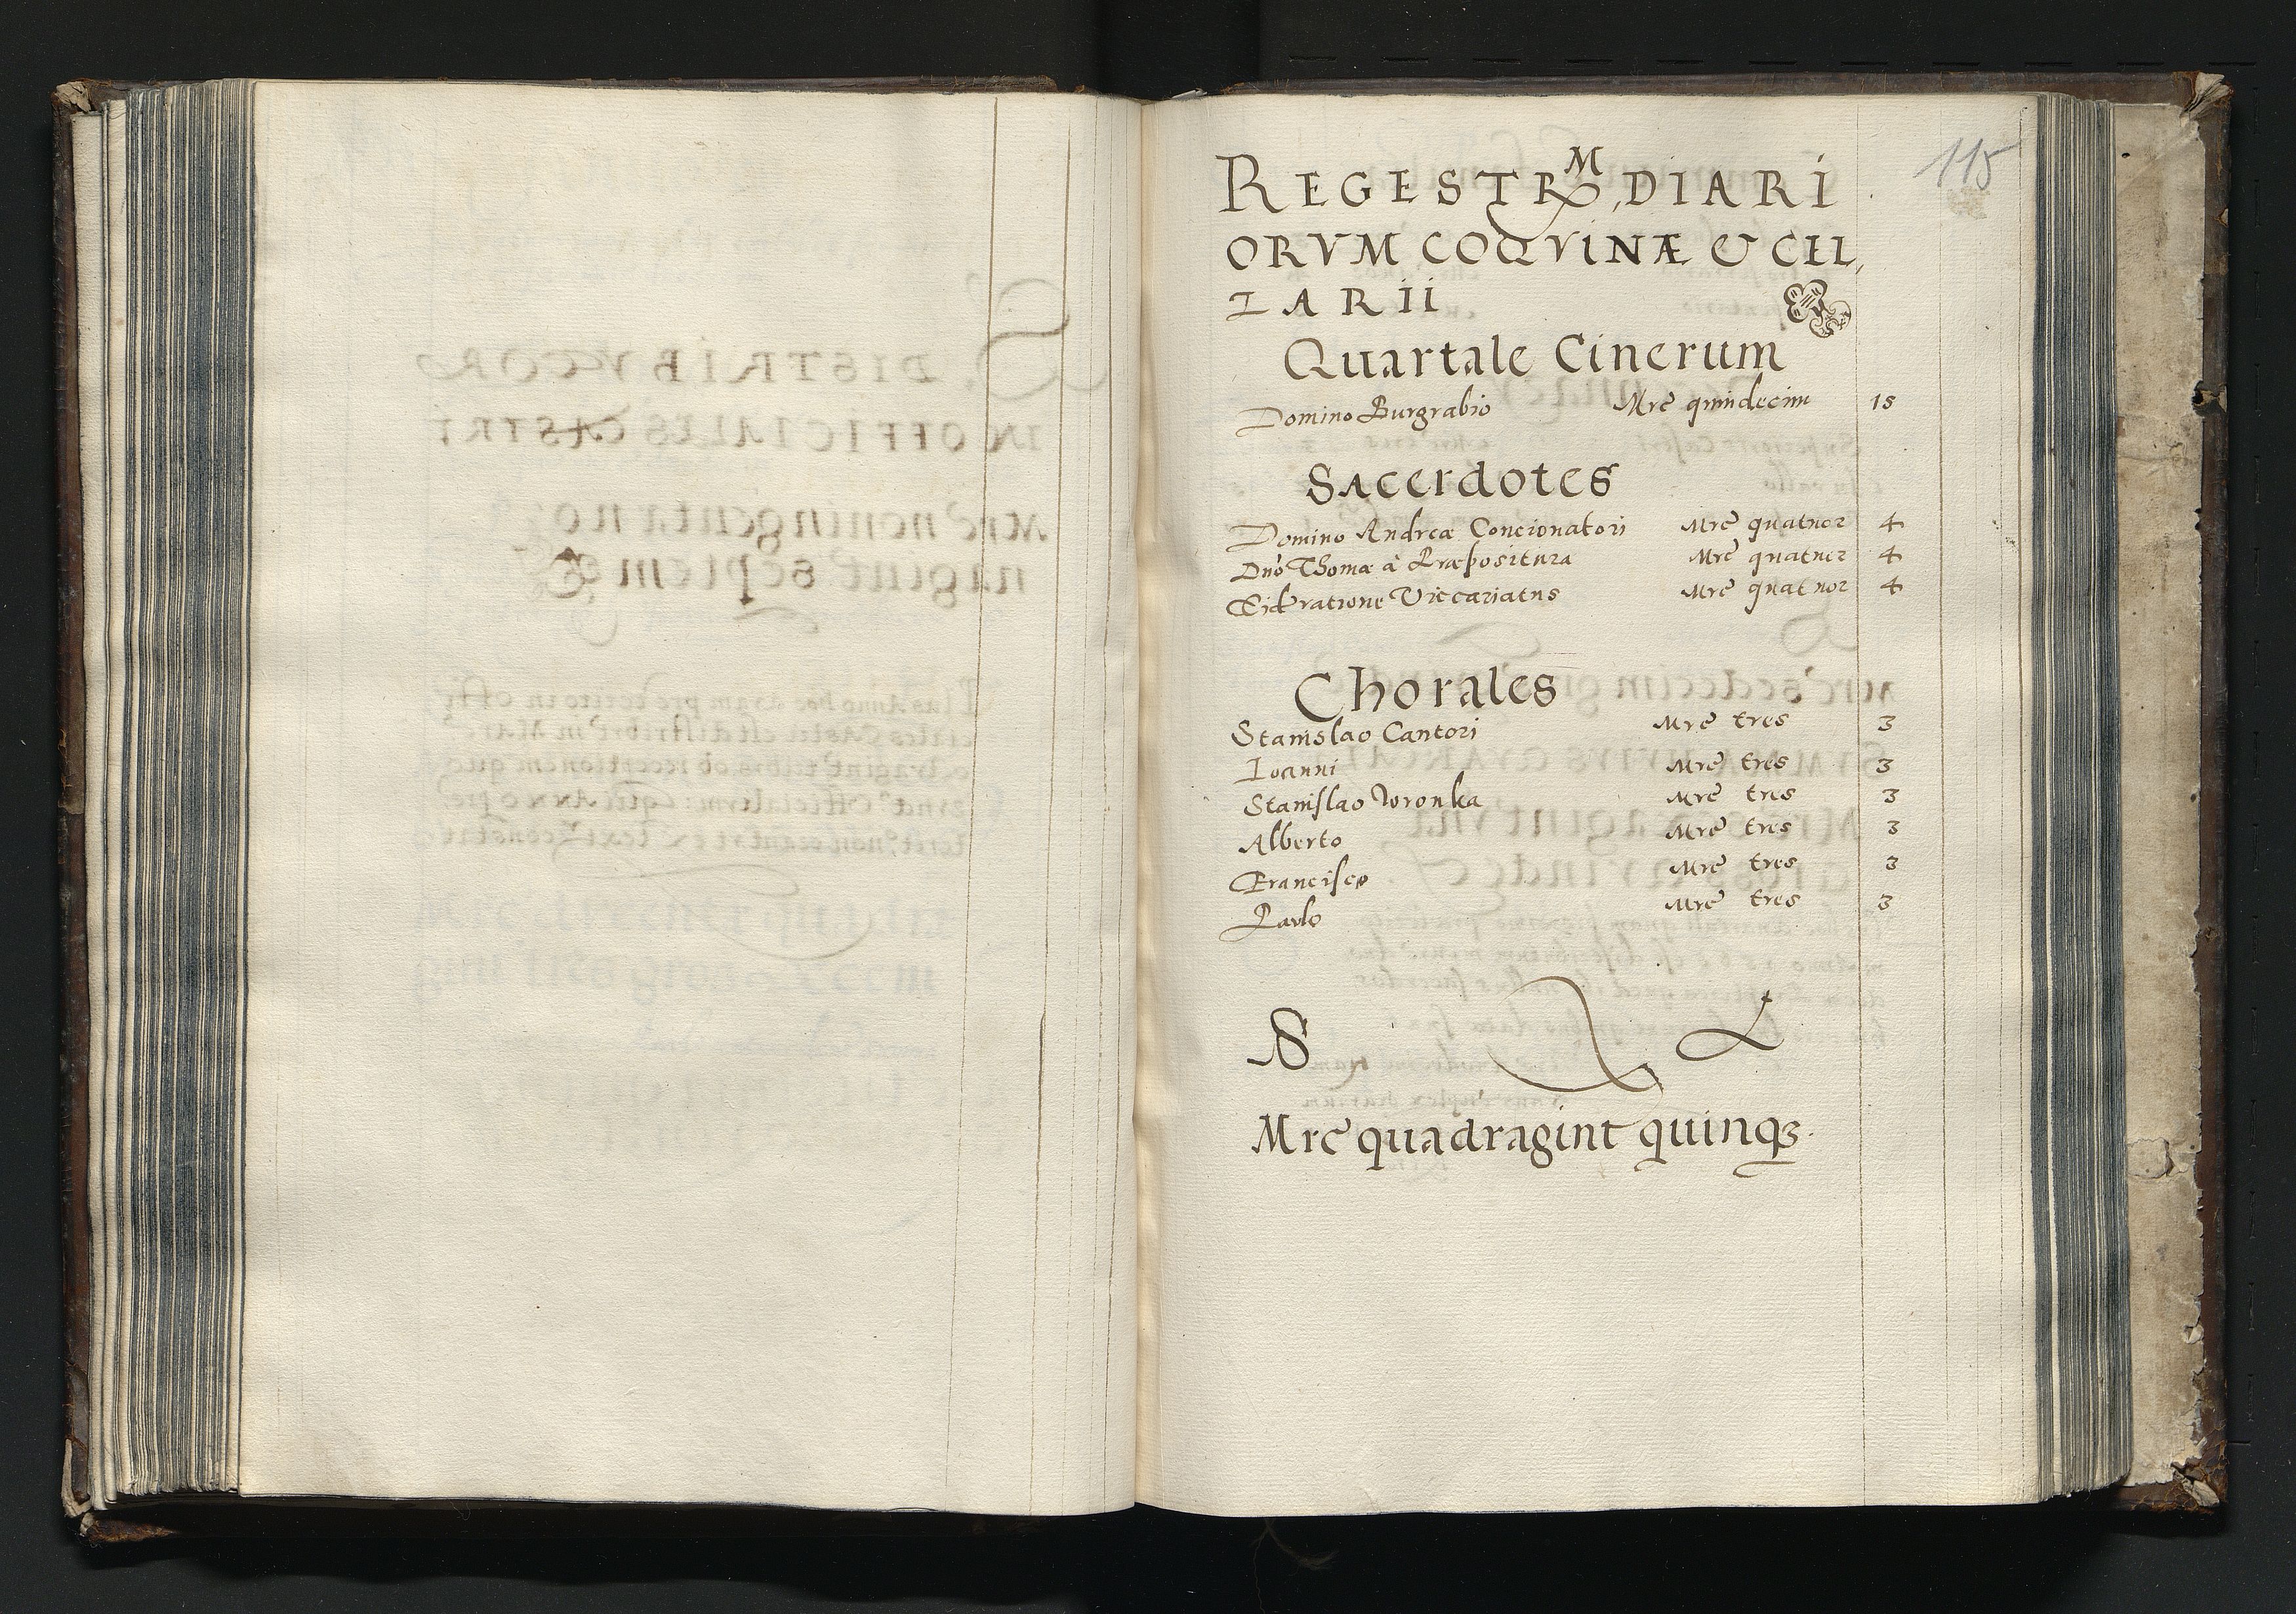 115
REGESTRM DIARI
ORVM COQVINÆ & CEL,
LARII
Quartale Cinerum
Domino Burgrabio Mrē quindecim 15
Sacerdotes
Domino Andreæ Concionatori Mrē quatuor 4
Dnō Thomæ à Præpositura Mrē quatuor 4
Eidē ratione Viccariatus Mrē quatuor 4
Chorales
Stanislao Cantori Mrē tres 3
Ioanni Mrē tres 3
Stanislao Woronka Mrē tres 3
Alberto Mrē tres 3
Francisco Mrē tres 3
Paulo Mrē tres 3
S
Mrē quadragint quinqꝫ